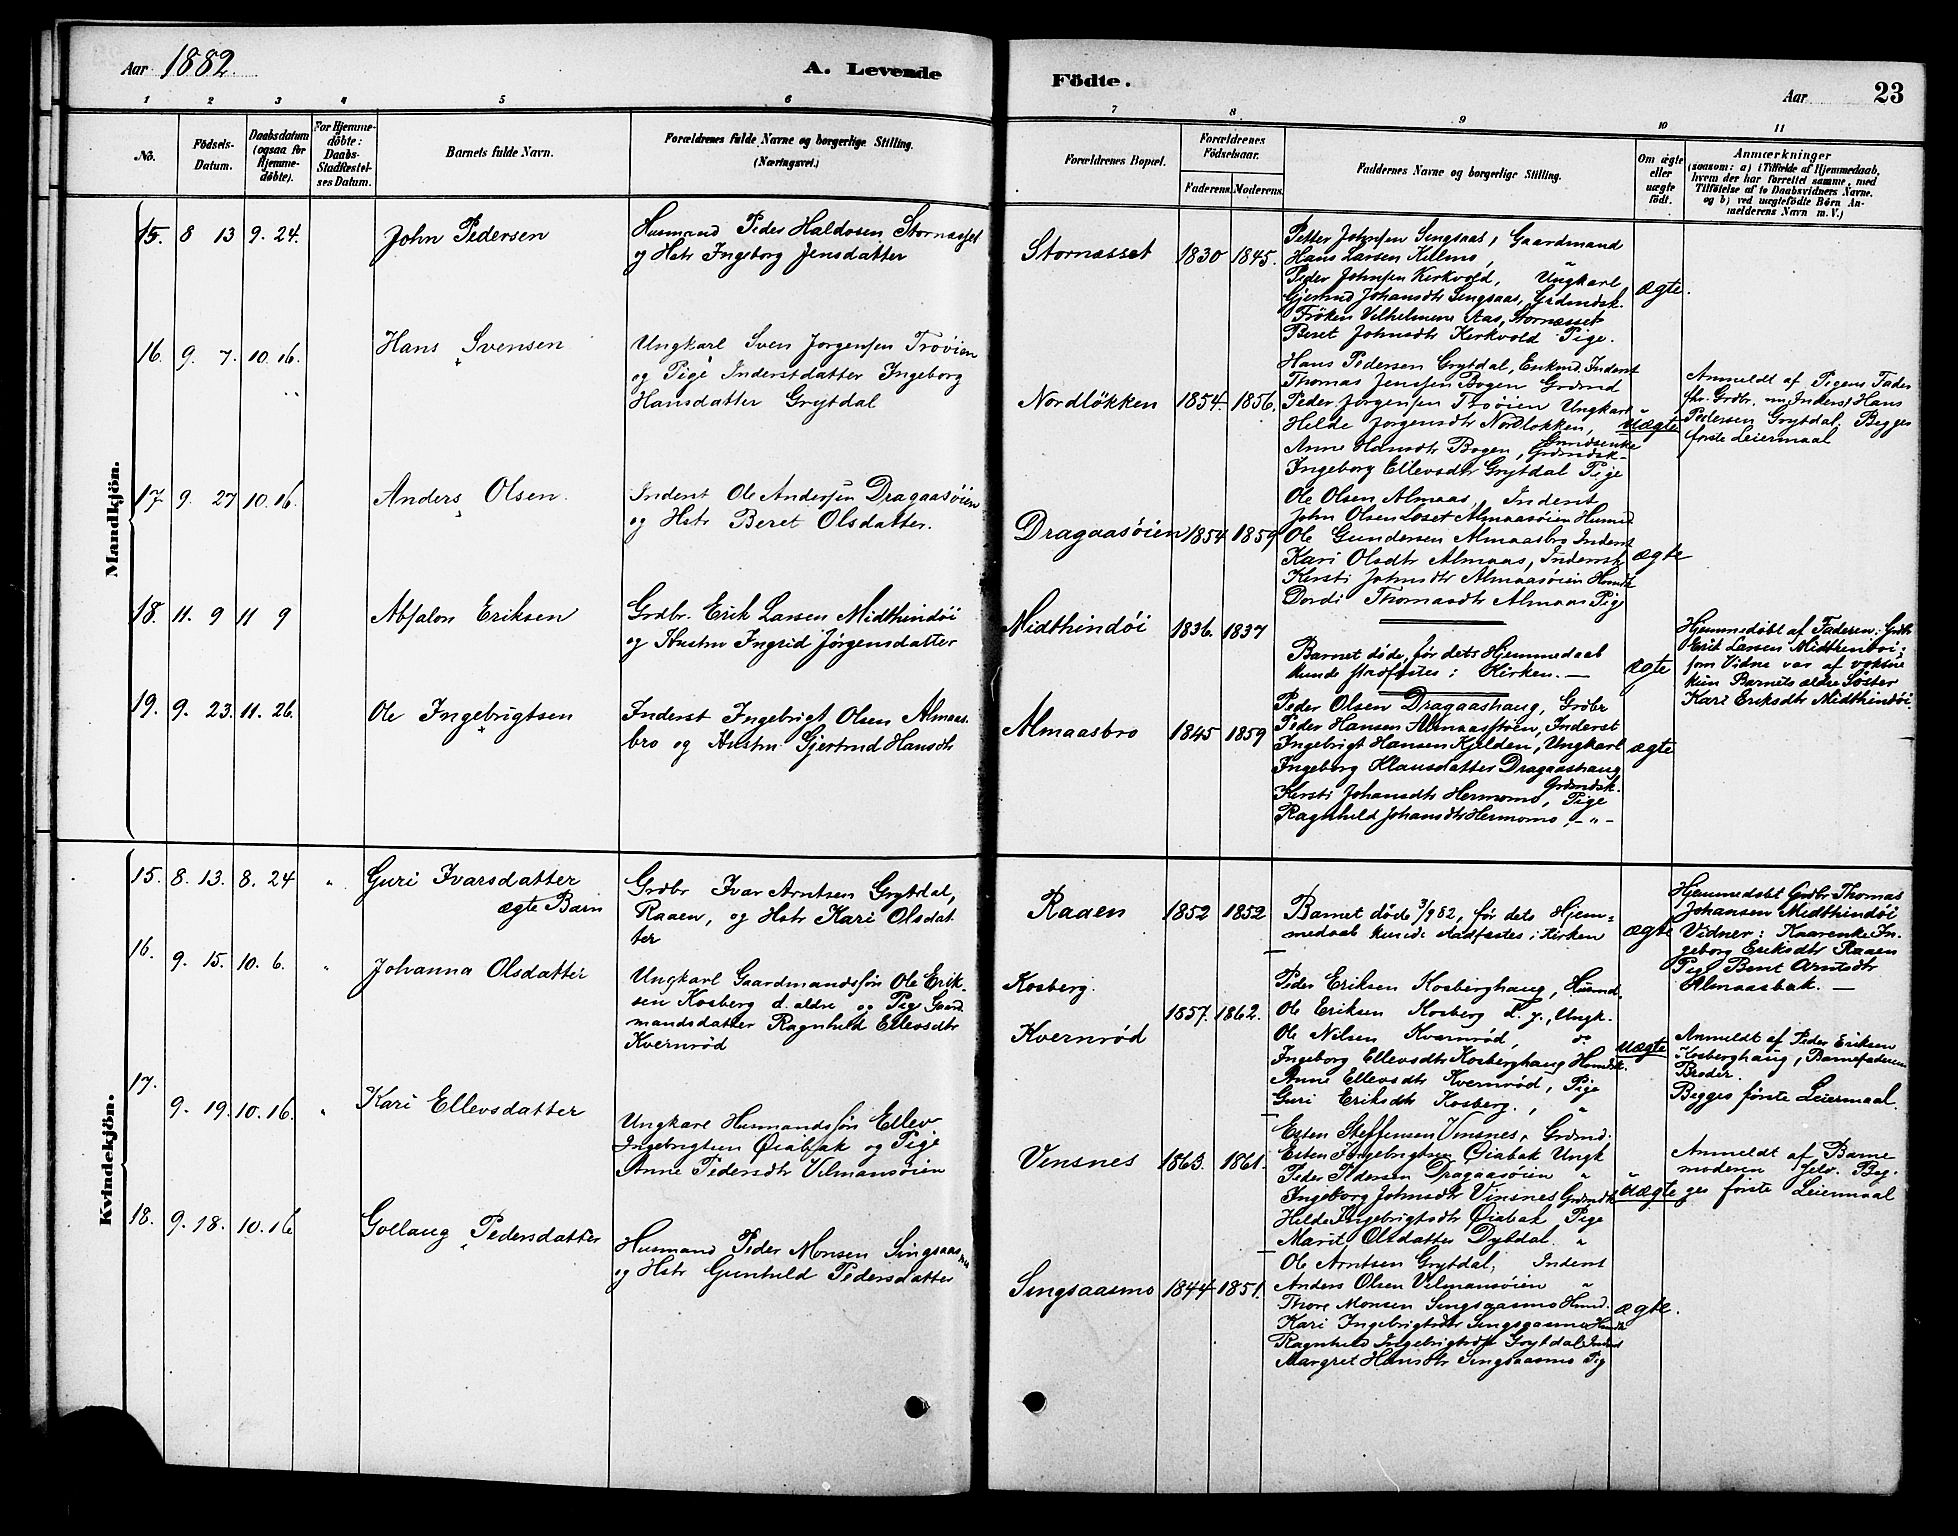 Aar 1882.
A. Levende
Födte.
Aar
23
1 2 3 4 5 6 7 8 9 10 11
No.
Födsels-
Datum.
Daabsdatum
(ogsaa for
Hjemme-
döbte).
For Hjemme-
döbte:
Daabs-
Stadfæstel-
ses Datum.
Barnets fulde Navn.
Forældrenes fulde Navne og borgerlige Stilling.
(Næringsvei.)
Forældrenes Bopæl.
Forældrenes
Födselsaar.
Faderens. Moderens.
Faddernes Navne og borgerlige Stilling.
Om ægte
eller
uægte
födt.
Anmærkninger
(saasom: a) i Tilfælde af Hjemmedaab,
hvem der har forrettet samme, med
Tilföielse af to Daabsvidners Navne.
og b) ved uægtefödte Börn An-
melderens Navn m. V.)
Mandkjön.
15. 8 13 9. 24.
John Pedersen
Husmand Peder Haldosen Stornæsset
og Hstr Ingeborg Jensdatter
Stornæsset 1830 1845.
Petter Johnsen Singsaas, Gaardmand
Hans Larsen Killmo, "
Peder Johnsen Kirkvold, Ungkarl
Gjertrud Johansdtr Singsaas, Grdmdsk.
Fröken Vilhelmine Aas, Stornæsset
Beret Johnsdtr Kirkvold Pige.
ægte.
16. 9. 7. 10. 16.
Hans Svensen
Ungkarl Sven Jørgensen Trøøien
og Pige Inderstdatter Ingeborg
Hansdatter Grytdal
Nordløkken 1854. 1856.
Hans Pedersen Grytdal, Enkmd. Inderst
Thomas Jensen Bogen Grdmd
Peder Jørgensen Trøøien Ungkarl
Helde Jørgensdtr Nordløkken,
Anne Hansdtr Bogen, Grdmdsk.
Ingeborg Ellevsdtr Grytdal Pige
uægte
Anmeldt af Pigens Fader
fhv. Grdbr. nu Inderst Hans
Pedersen Grytdal. Begges
første Leiermaal
17. 9. 27 10. 16.
Anders Olsen.
Inderst Ole Andersen Dragaasøien
og Hstr Beret Olsdatter.
Dragaasøien 1854 1859
Ole Olsen Almaas, Inderst
John Olsen Løset Almaasøien Husmd
Ole Gundersen Almaasbro Inderst
Kari Olsdtr Almaas, Inderst
Kirsti Johnsdtr Almaasøien
Dordi Thomasdtr Almaas Pige
ægte
18. 11. 9 11 9
Absalon Eriksen
Grdbr. Erik Larsen Midthindøi
og Hustru Ingrid Jørgensdatter
Midthindøi 1836. 1837
Barnet døde, før dets Hjemmedaab
kunde stadfæstes i Kirken. —
ægte
Hjemmedøbt af Faderen: Grdbr
Erik Larsen Midthindøi;
som Vidne var af voksne
kun Barnets ældre Søster
Kari Eriksdtr Midthindøi.
19. 9. 23. 11. 26.
Ole Ingebrigtsen
Inderst Ingebrigt Olsen Almaas-
bro og Hustru Gjertrud Hansdtr
Almaasbro 1845 1859
Peder Olsen Dragaashaug, Grdbr
Peder Hansen Almaasøien, Inderst
Ingebrigt Hansen Kjelden, Ungkarl
Ingeborg Klausdatter Dragaashaug
Grdmdsk.
Kirsti Johansdtr Hermomo, Pige
Ragnhild Johansdtr Hermomo, -"-
ægte
Kvindekjön.
15. 8. 13. 8. 24 "
Guri Ivarsdatter
ægte Barn
Grdbr Ivar Arntsen Grytdal,
Raaen, og Hstr Kari Olsdat
ter
Raaen 1852 1852
Barnet døde 3/9 82, før dets Hjem-
medaab kunde stadfæstes i Kirken
ægte
Hjemmedøbt Grdbr Thomas
Johansen Midthindøi
Vidner: Kaarenke In-
geborg Eriksdtr Raaen
Pige Berit Arntsdtr
Almaasbak. —
16. 9. 15. 10. 6. "
Johanna Olsdatter
Ungkarl Gaardmandssøn Ole Erik-
sen Kosberg d. ældre og Pige Gaard
mandsdatter Ragnhild Ellevsdtr
Kvernrød
Kosberg.
Kvernrød
1857. 1862.
Peder Eriksen Kosberghaug, Husmd.
Ole Eriksen Kosberg d. y., Ungk.
Ole Nilsen Kvernrød, do
Ingeborg Ellevsdtr Kosberghaug Husmdsk.
Anne Ellevsdtr Kvernrød, Pige
Guri Eriksdtr Kosberg., "
uægte
Anmeldt af Peder Eriksen
Kosberghaug, Barnefaderens
Broder.
Begges første Leiermaal.
17. 9. 19. 10. 16. "
Kari Ellevsdatter
Ungkarl Husmandssøn Ellev
Ingebrigtsen Øiabak og Pige
Anne Pedersdtr Vilmansøien
Vinsnes 1863. 1861.
Esten Steffensen Vinsnes, Grdmd.
Esten Ingebrigtsen Øiabak Ungk
Peder Pedersen Dragaasøien "
Ingeborg Johnsdtr Vinsnes Grdmdsk
Helde Ingebrigtsdtr Øiabak Pige
Marit Olsdatter Dybdal. "
uægte
Anmeldt af Barne
moderen selv. Beg-
ges første Leiermaal
18. 9. 18. 10. 16
Gollaug Pedersdatter
Husmand Peder Monsen Singsaasmo
og Hstr Gunhild Pedersdatter
Singsaasmo 1844 1851.
Ole Arntsen Grytdal, Inderst
Anders Olsen Vilmansøien "
Thore Monsen Singsaasmo Husmd.
Kari Ingebrigtsdtr Singsaasmo
Ragnhild Ingebrigtsdtr Grytdal Inderst
Margret Hansdtr Singsaasmo Pig
ægte.